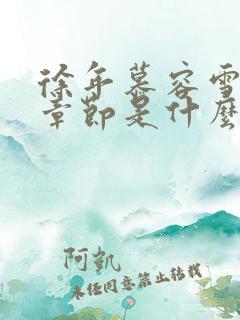 徐年慕容雪
章節是什麼
阿凱
未经同意禁止转载